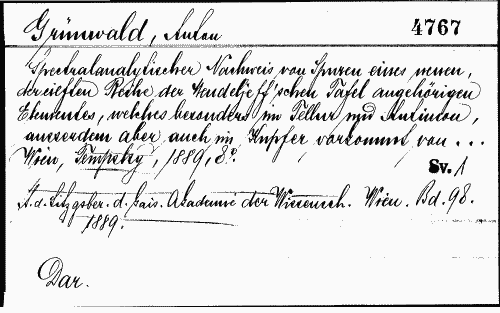 Grünwald, Anton
4767
Spectralanalytischer Nachweis von Spuren eines neuen,
der eilften Reihe der Mendeljeff'schen Tafel angehörigen
Elementes, welches besonders im Tellur und Antimon,
ausserdem aber auch im Kupfer vorkommt, von ...
Wien, Tempsky, 1889, 8°.
Sv. A
A. d. Sitzgsber. d. kais. Akademie der Wissensch. Wien. Bd. 98.
1889.
Dar.